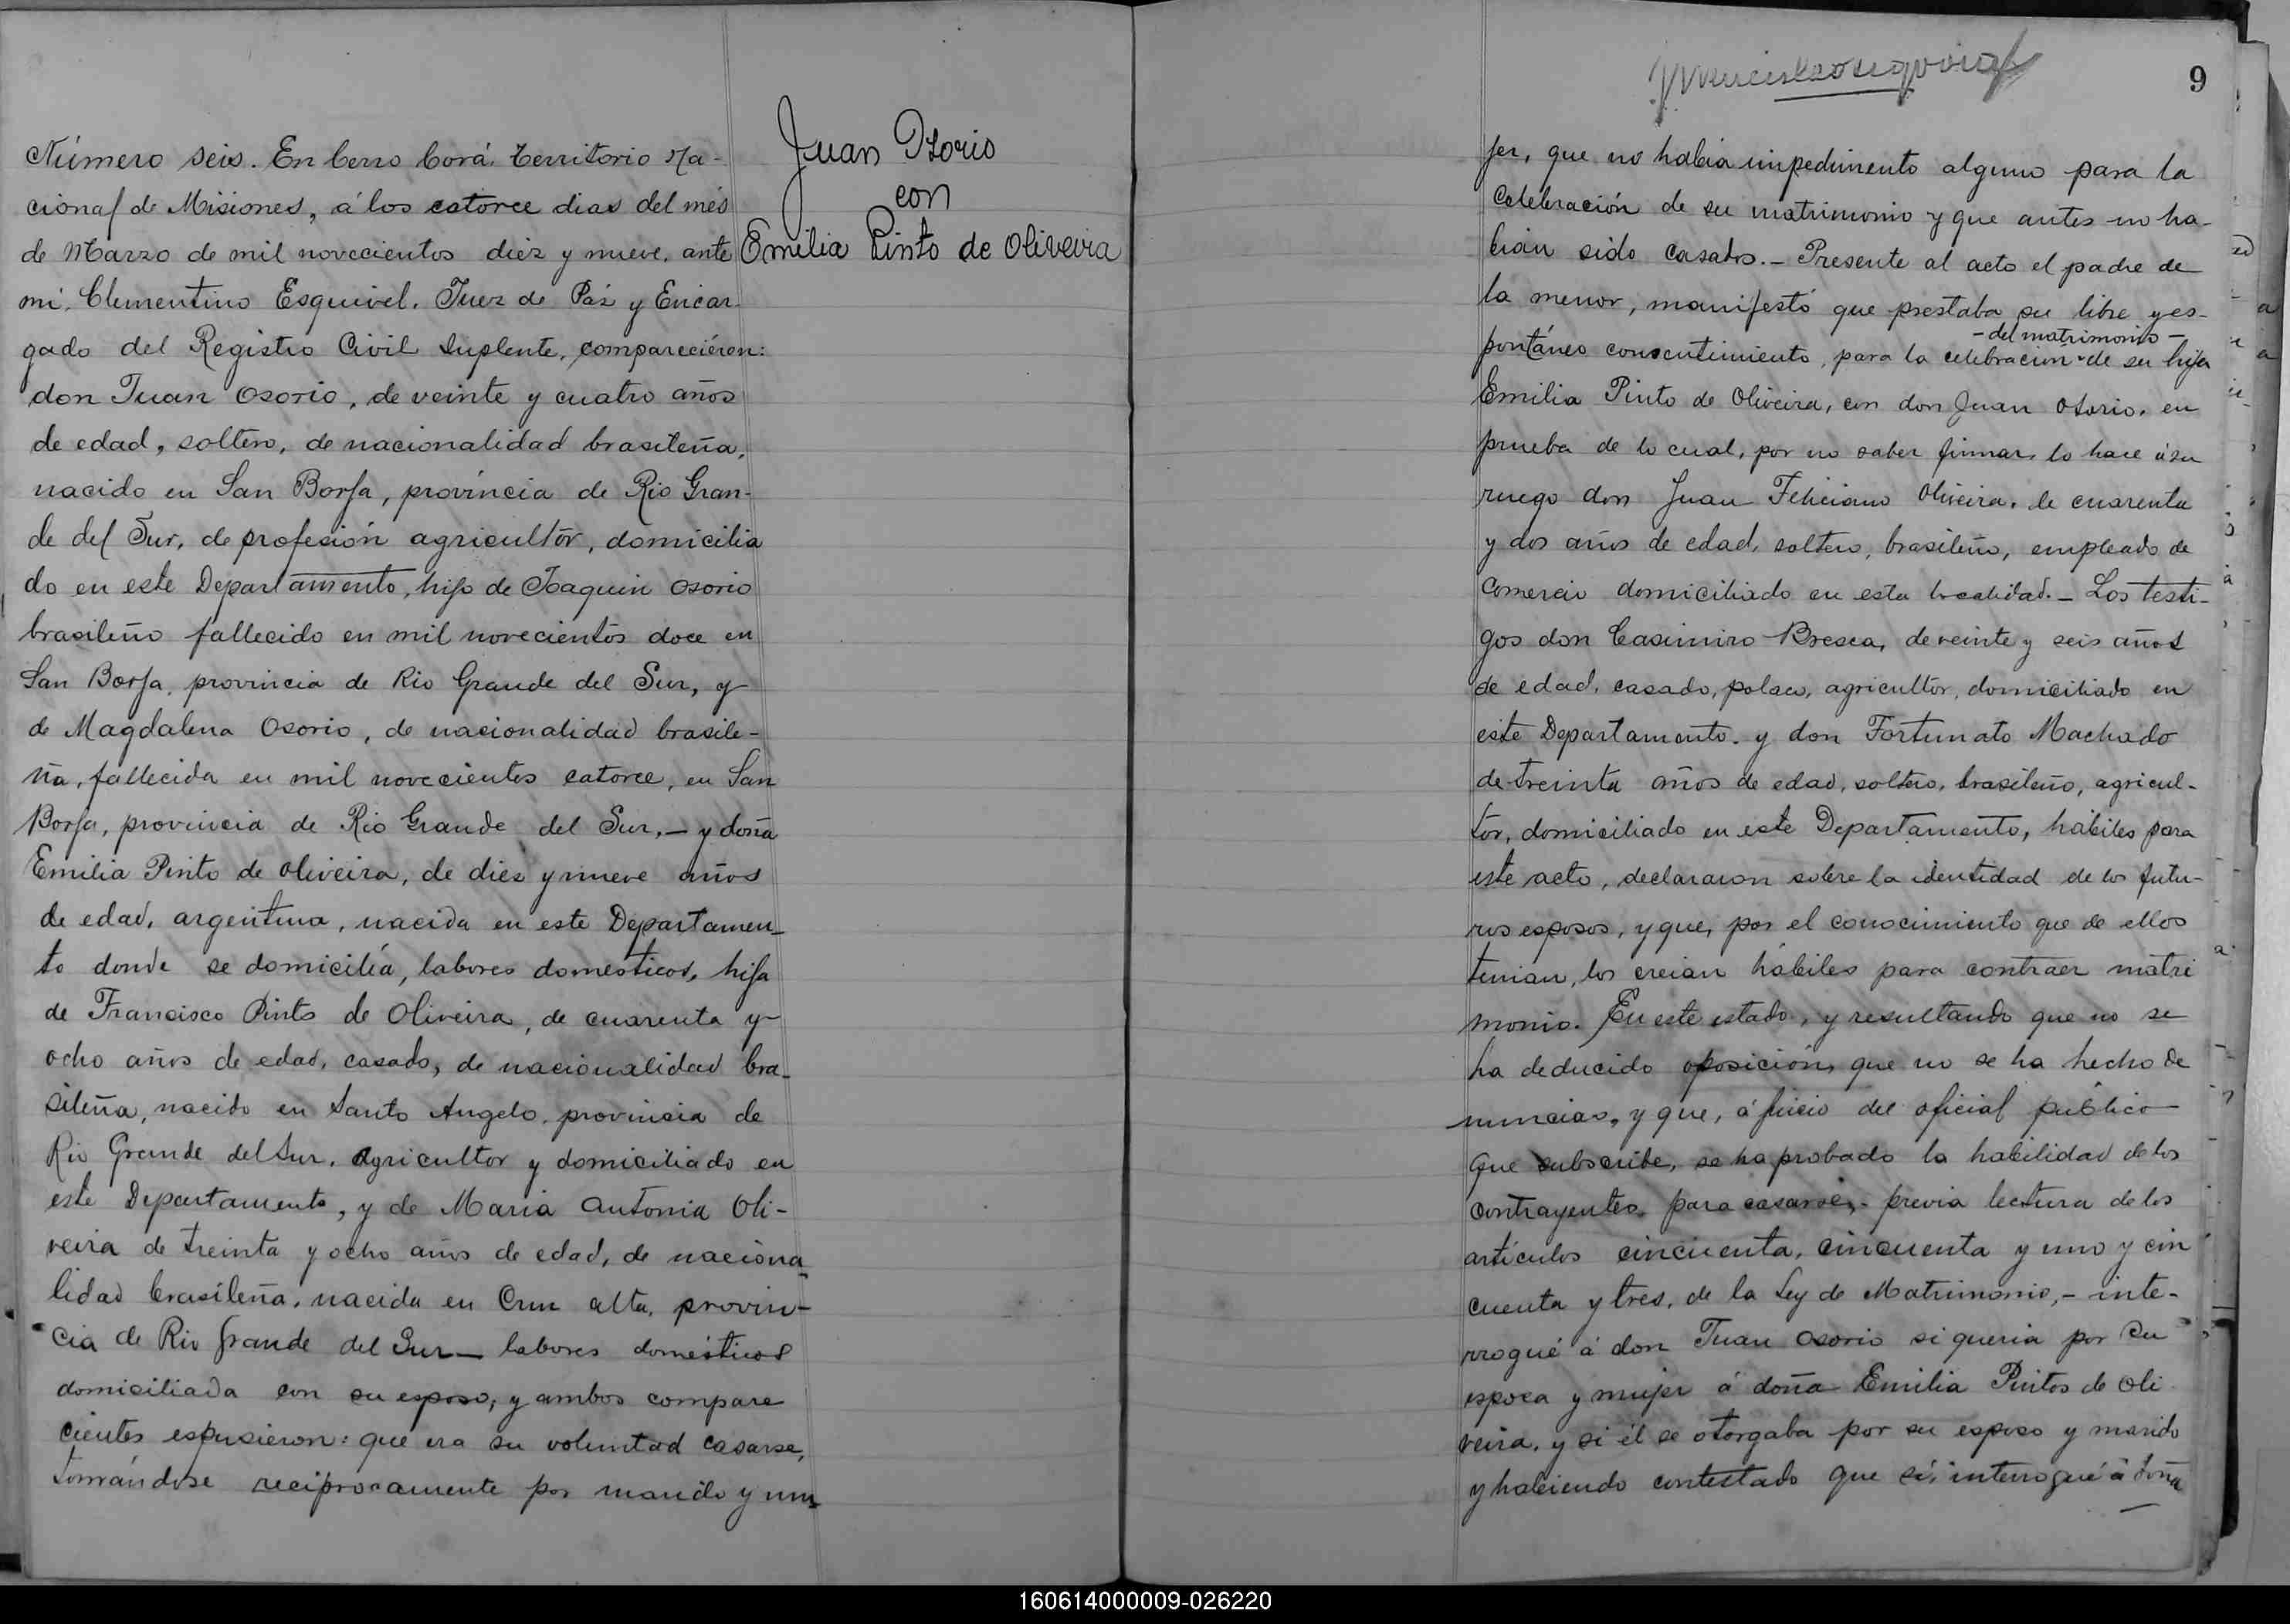 Número seis. En Cerro Corá. Territorio Na-
cional de Misiones, á los catorce dias del més
de Marzo de mil novecientos diez y nueve, ante
mi, Clementino Esquivel. Juez de Paz y Encar-
gado del Registro Civil Suplente, compareciéron:
don Juan Osorio, de veinte y cuatro años
de edad, soltero, de nacionalidad brasileña,
nacido en San Borja, província de Rio Gran-
de del Sur, de profesión agricultor, domicilia
do en este Departamento, hijo de Joaquin Osorio
brasileño fallecido en mil novecientos doce en
San Borja, provincia de Rio Grande del Sur, y
de Magdalena Osorio, de nacionalidad brasile-
ña, fallecida en mil novecientos catorce, en San
Borja, provincia de Rio Grande del Sur, — y doña
Emilia Pinto de Oliveira, de diez y nueve años
de edad, argentina, nacida en este Departamen-
to donde se domicilia, labores domesticos, hija
de Francisco Pinto de Oliveira, de cuarenta y
ocho años de edad, casado, de nacionalidad bra-
sileña, nacido en Santo Angelo, provincia de
Rio Grande del Sur, agricultor y domiciliado en
este Departamento, y de Maria Antonia Oli-
veira de treinta y ocho años de edad, de naciona-
lidad brasileña, nacida en Cruz alta, provin-
cia de Rio Grande del Sur — labores domésticos
domiciliada con su esposo, y ambos compare
cientes espusieron: que era su voluntad casarse,
tomándose reciprocamente por marido y mu-
Juan Osorio
con
Emilia Pinto de Oliveira
9
jer, que no habia impedimento alguno para la
Celebración de su matrimonio y que antes no ha-
bian sido casados. — Presente al acto el padre de
la menor, manifestó que prestaba su libre y es-
- del matrimonio -
pontáneo consentimiento, para la celebracion de su hija
Emilia Pinto de Oliveira, con don Juan Osorio. en
prueba de lo cual, por no saber firmar, lo hace á su
ruego don Juan Feliciano Oliveira, de cuarenta
y dos años de edad, soltero, brasileño, empleado de
Comercio domiciliado en esta localidad. — Los testi-
gos don Casimiro Bresca, de veinte y seis años
de edad, casado, polaco, agricultor, domiciliado en
este Departamento. y don Fortunato Machado
de treinta años de edad, soltero, brasileño, agricul-
tor, domiciliado en este Departamento, hábiles para
este acto, declararon sobre la identidad de los futu-
ros esposos, y que, por el conocimiento que de ellos
tenian, los creian hábiles para contraer matri
monio. En este estado, y resultando que no se
ha deducido oposición, que no se ha hecho de
nuncias, y que, á juicio del oficial público
que subscribe, se ha probado la habilidad de los
contrayentes para casarse, - previa lectura de los
artículos cincuenta, cincuenta y uno y cin
cuenta y tres, de la Ley de Matrimonio, - inte-
rrogué á don Juan Osorio si queria por su
esposa y mujer á doña Emilia Pintos de Oli
veira, y si él se otorgaba por su esposo y marido
y habiendo contestado que sí, interrogué á doña
160614000009-026220